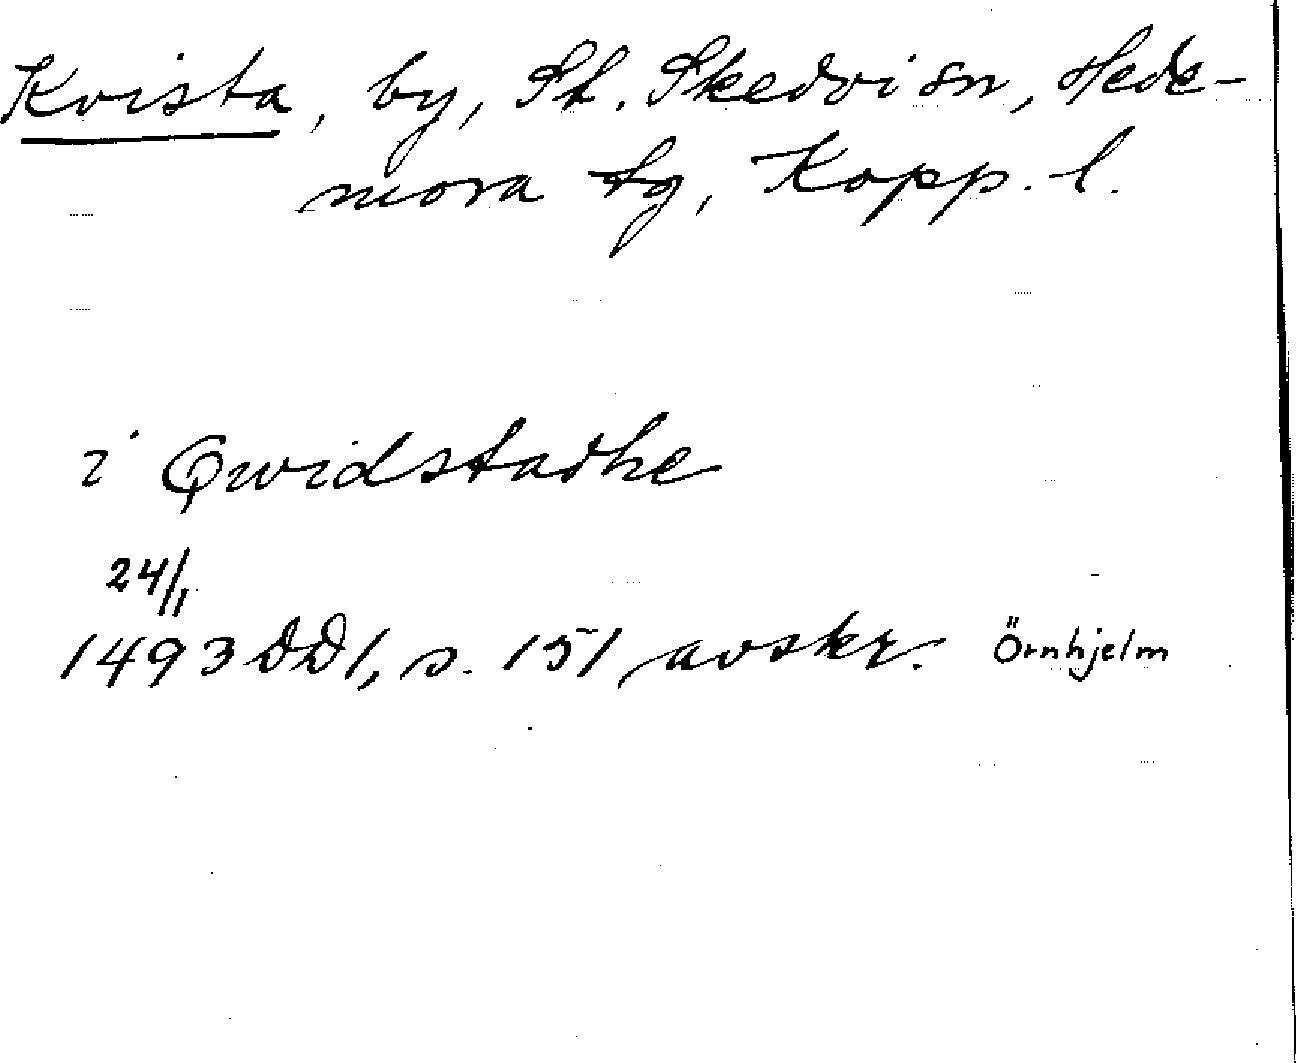 Kvista, by, St. Skedvi sn, Hede-
mora tg, Kopp. l.
i Qwidstadhe
24/1
1493 DD1, s. 151 avskr. Örnhjelm